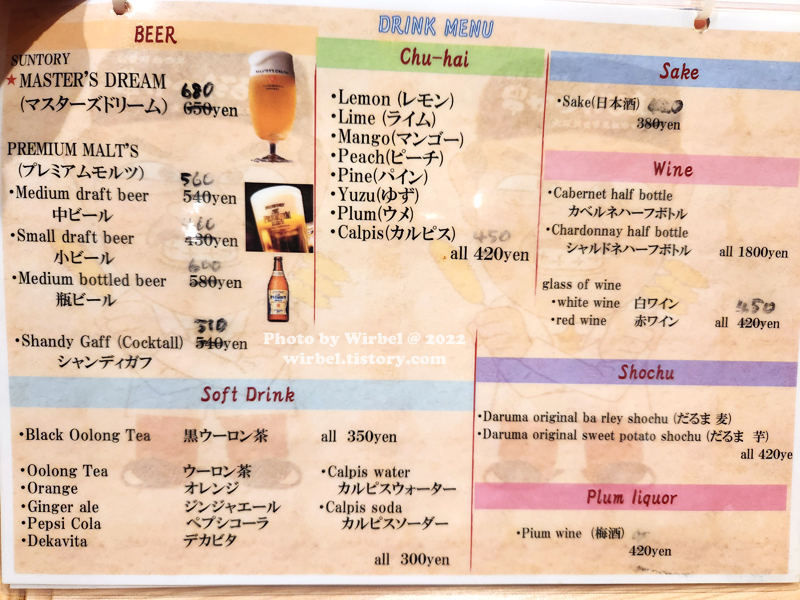 DRINK MENU
BEER
SUNTORY
★MASTER'S DREAM 680
(マスターズドリーム) 650yen
PREMIUM MALT'S
(プレミアムモルツ) 560
・Medium draft beer 540yen
中ビール
・Small draft beer 430yen
小ビール 600
・Medium bottled beer 580yen
瓶ビール
・Shandy Gaff (Cocktall) 540yen
シャンディガフ
Chu-hai
・Lemon (レモン)
・Lime (ライム)
・Mango(マンゴー)
・Peach(ピーチ)
・Pine(パイン)
・Yuzu(ゆず)
・Plum(ウメ)
・Calpis(カルピス) 450
all 420yen
Sake
・Sake(日本酒)
380yen
Wine
・Cabernet half bottle
カベルネハーフボトル
・Chardonnay half bottle
シャルドネハーフボトル all 1800yen
glass of wine
・white wine 白ワイン 450
・red wine 赤ワイン all 420yen
Soft Drink
・Black Oolong Tea 黒ウーロン茶 all 350yen
・Oolong Tea ウーロン茶
・Orange オレンジ
・Ginger ale ジンジャエール
・Pepsi Cola ペプシコーラ
・Dekavita デカビタ
・Calpis water
カルピスウォーター
・Calpis soda
カルピスソーダー
all 300yen
Shochu
・Daruma original ba rley shochu (だるま 麦)
・Daruma original sweet potato shochu (だるま 芋)
all 420ye
Plum liquor
・Pium wine (梅酒)
420yen
Photo by Wirbel @ 2022
wirbel.tistory.com